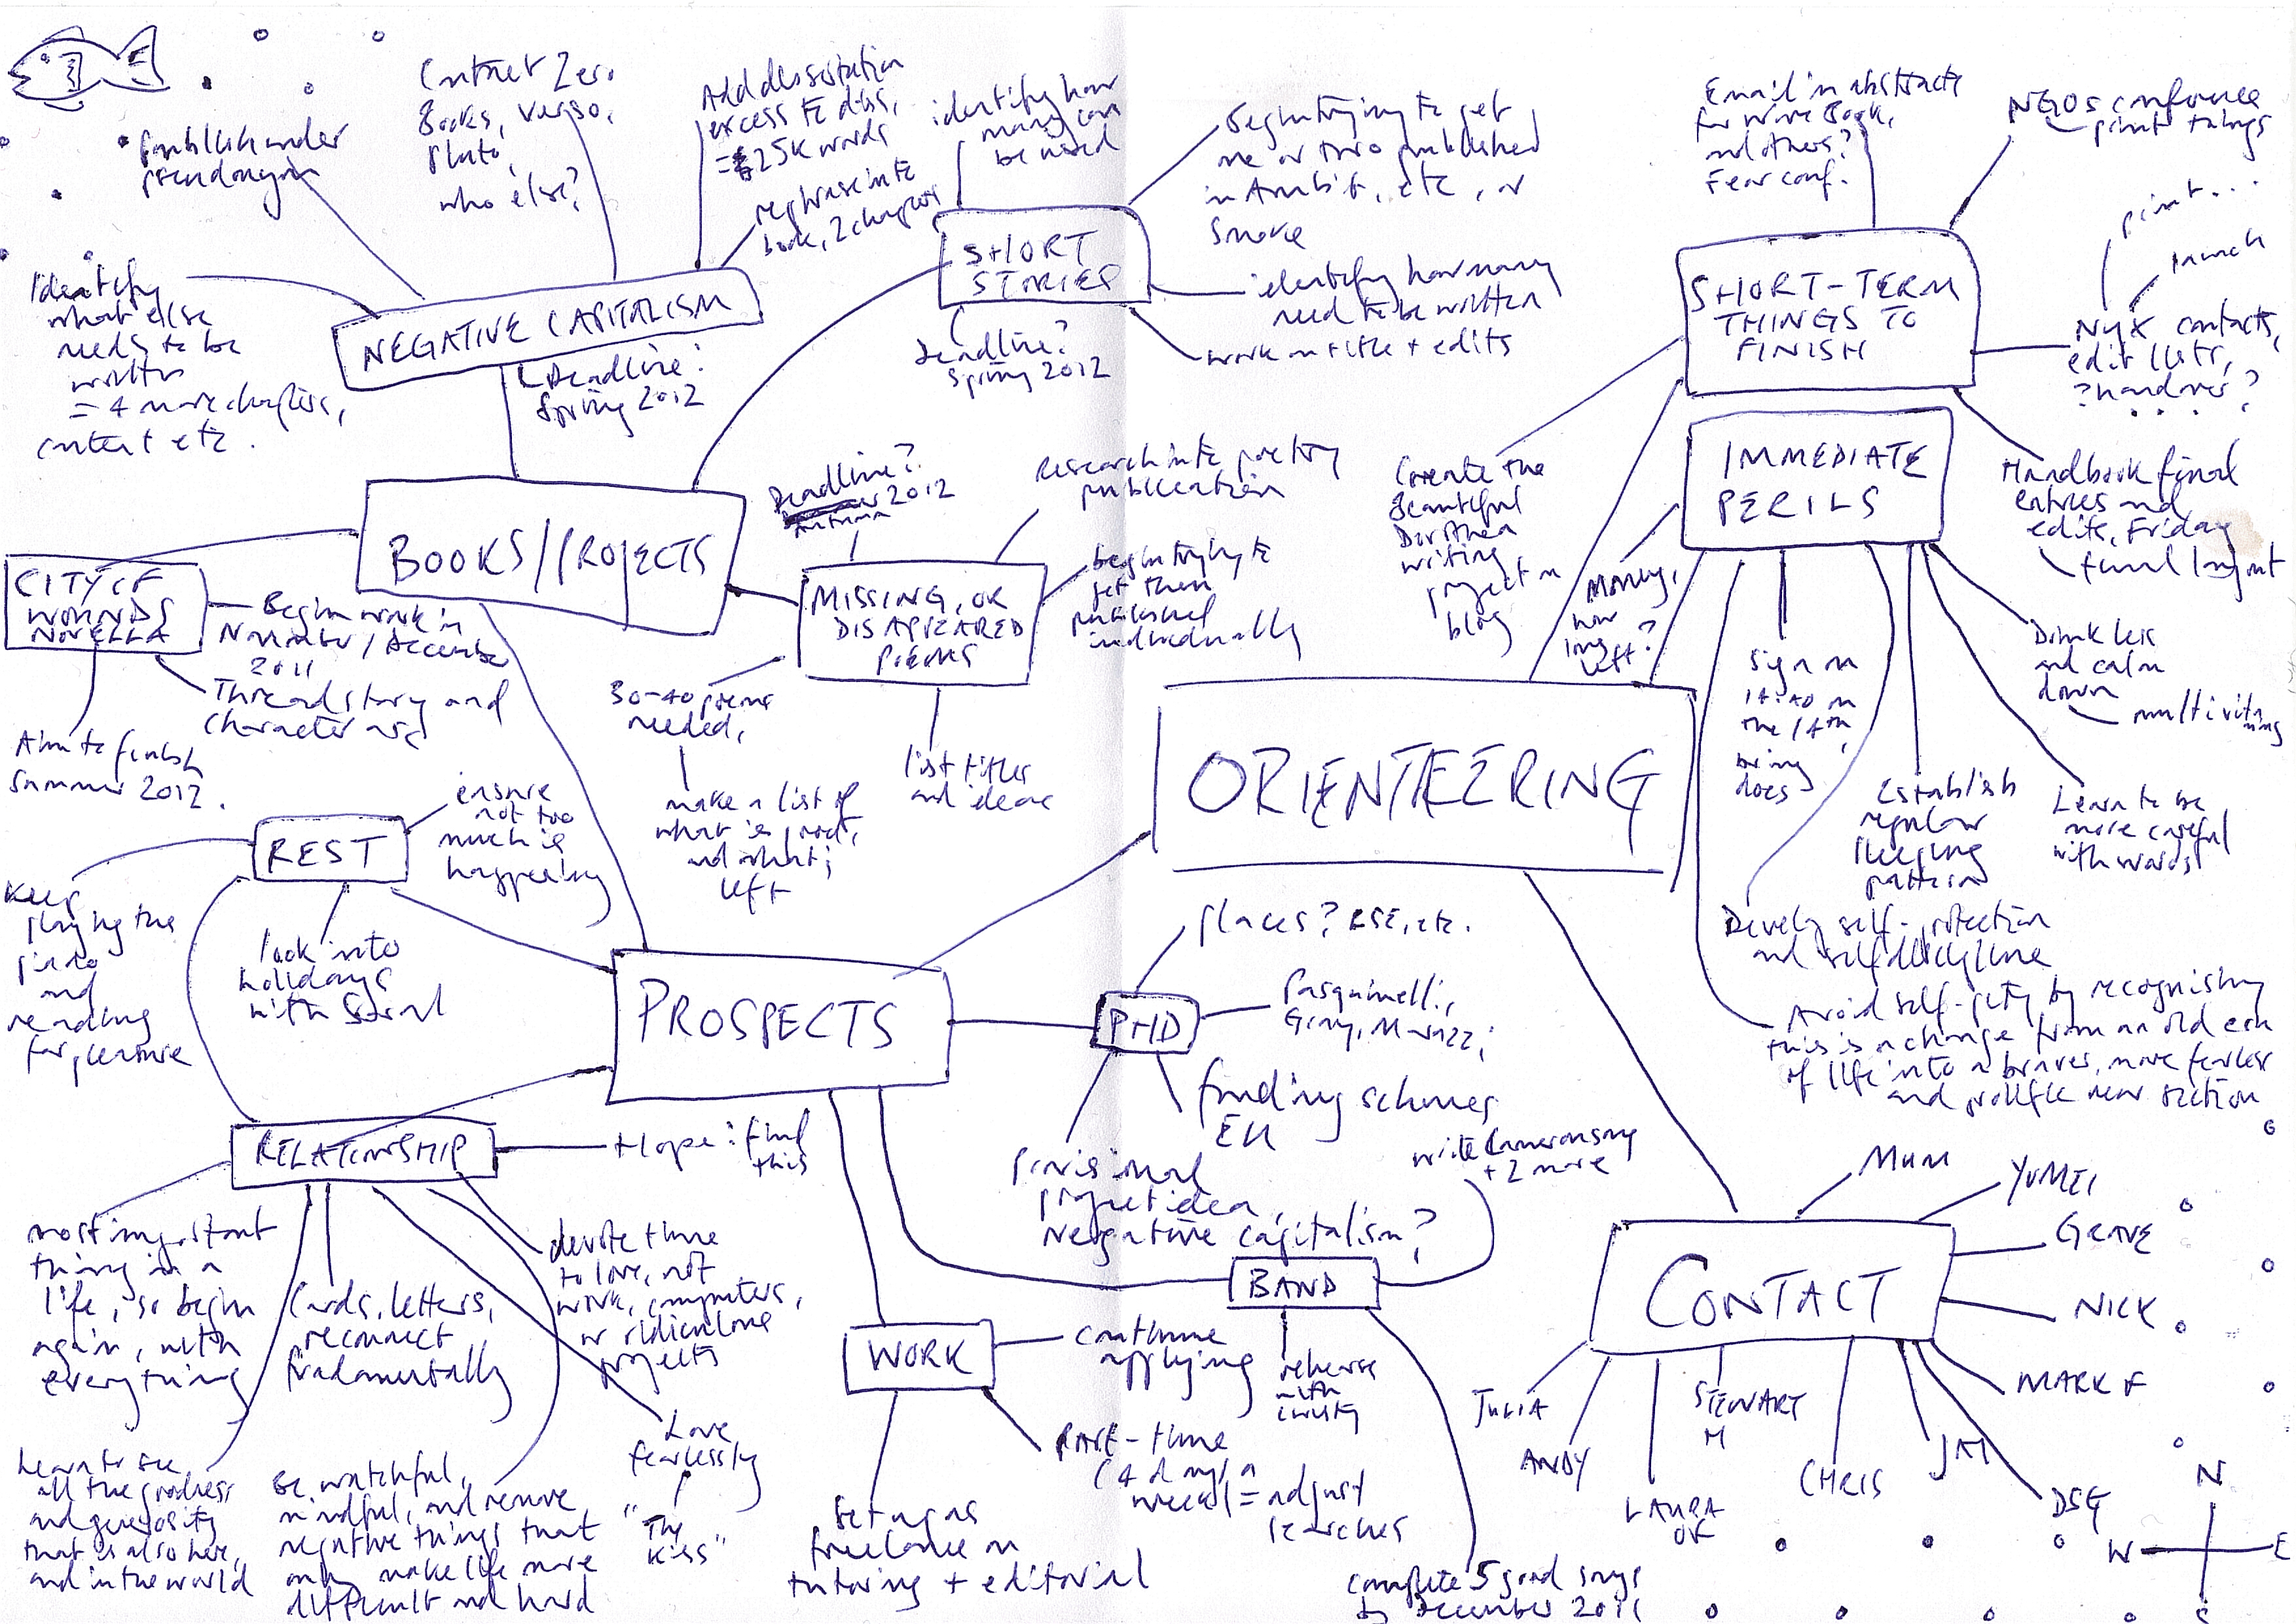 Publish under
pseudonym
Contact Zero
Books, Verso,
Pluto,
who else?
Add dissertation
excess to diss,
25K words
rephrase into
book, 2 chapters
identify how
many can
be used
Begin trying to get
one or two published
in Ambit, etc, or
Smoke
Email in abstracts
for Wire Book,
and others?
Fear conf.
NGOs conference
print things
print...
launch
Identify
what else
needs to be
written
= 4 more chapters,
content etc.
NEGATIVE CAPITALISM
Deadline:
Spring 2012
SHORT
STORIES
Deadline?
Spring 2012
identify how many
need to be written
work on title + edits
SHORT-TERM
THINGS TO
FINISH
NYX contacts,
edit lists,
? handover?
Handbook final
entries and
edits, Friday
final layout
Create the
Beautiful
Dorothea
writing
project on
blog
IMMEDIATE
PERILS
Money,
how
long
left?
Sign on
14:40 on
the 14th,
bring
docs
Drink less
and calm
down
multivitamins
Establish
regular
sleeping
pattern
Learn to be
more careful
with words
Develop self-protection
and self discipline
Avoid self-pity by recognising
this is a change from an old era
of life into a braver, more fearless
and prolific new section
BOOKS/PROJECTS
CITY OF
WOUNDS
NOVELLA
Begin work in
November/December
2011
Thread story and
character arc
Aim to finish
Summer 2012.
Deadline?
Autumn 2012
Research into poetry
publication
MISSING, OR
DISAPPEARED
POEMS
begin trying to
get them
published
individually
30-40 poems
needed,
make a list of
what is good,
and what is
left
list titles
and ideas
ORIENTEERING
REST
ensure
not too
much is
happening
Keep
playing the
piano
and
reading
for pleasure
look into
holidays
with
PROSPECTS
PHD
places? LSE, etc.
Pasquinelli,
Gray,
funding schemes
EU
provisional
project idea,
negative capitalism?
RELATIONSHIP
Hope: find
this
most important
thing in a
life, so begin
again, with
everything
Cards, letters,
reconnect
fundamentally
devote time
to love, not
work, computers,
or ridiculous
projects
Love
fearlessly
"The
Kiss"
Learn to see
all the goodness
and generosity
that is also here,
and in the world
Be watchful,
mindful, and remove
negative things that
only make life more
difficult and hard
WORK
continue
applying
Part-time
(4 days a
week) = adjust
searches
Set up as
freelance in
tutoring + editorial
BAND
write Cameron song
+ 2 more
rehearse
with
complete 5 good songs
by December 2011
CONTACT
MUM
YUMEI
GRAVE
NICK
MARK F
DSG
JAM
CHRIS
STEWART
M
LAURA
OK
ANDY
JULIA
N
W
E
S